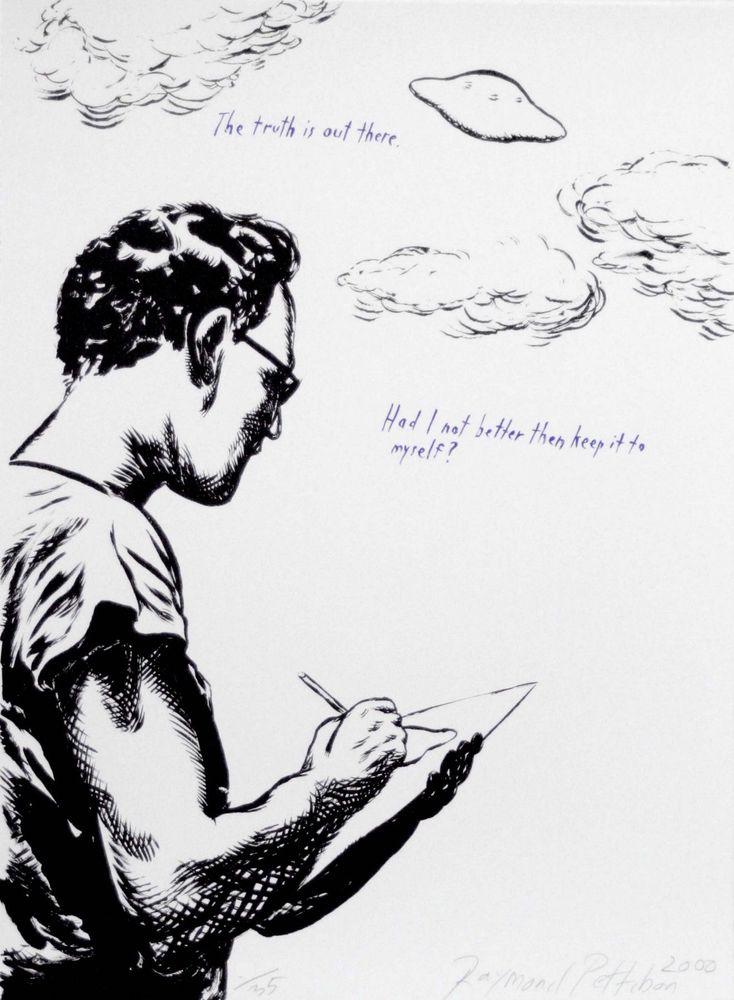 The truth is out there.
Had I not better then keep it to
myself?
/35
Raymond Pettibon 2000